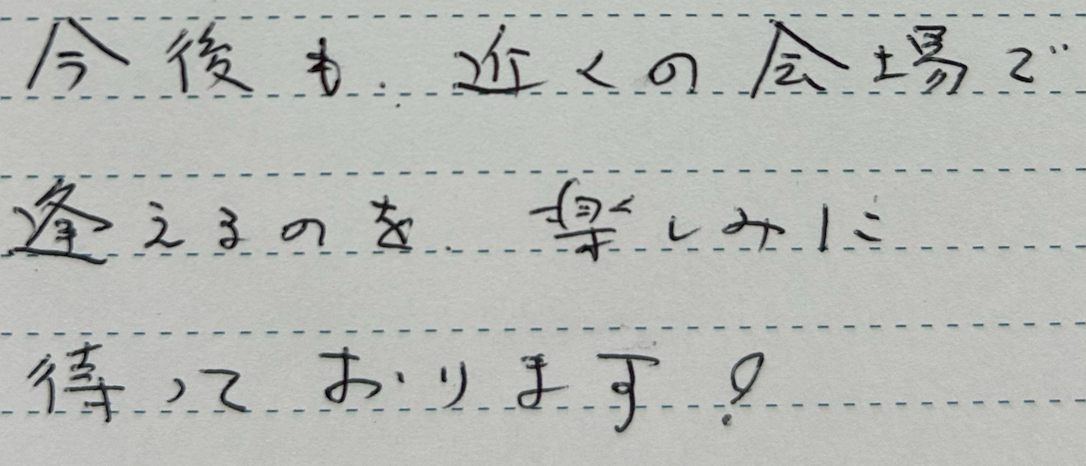 今後も、近くの会場で
逢えるのを、楽しみに
待っております!